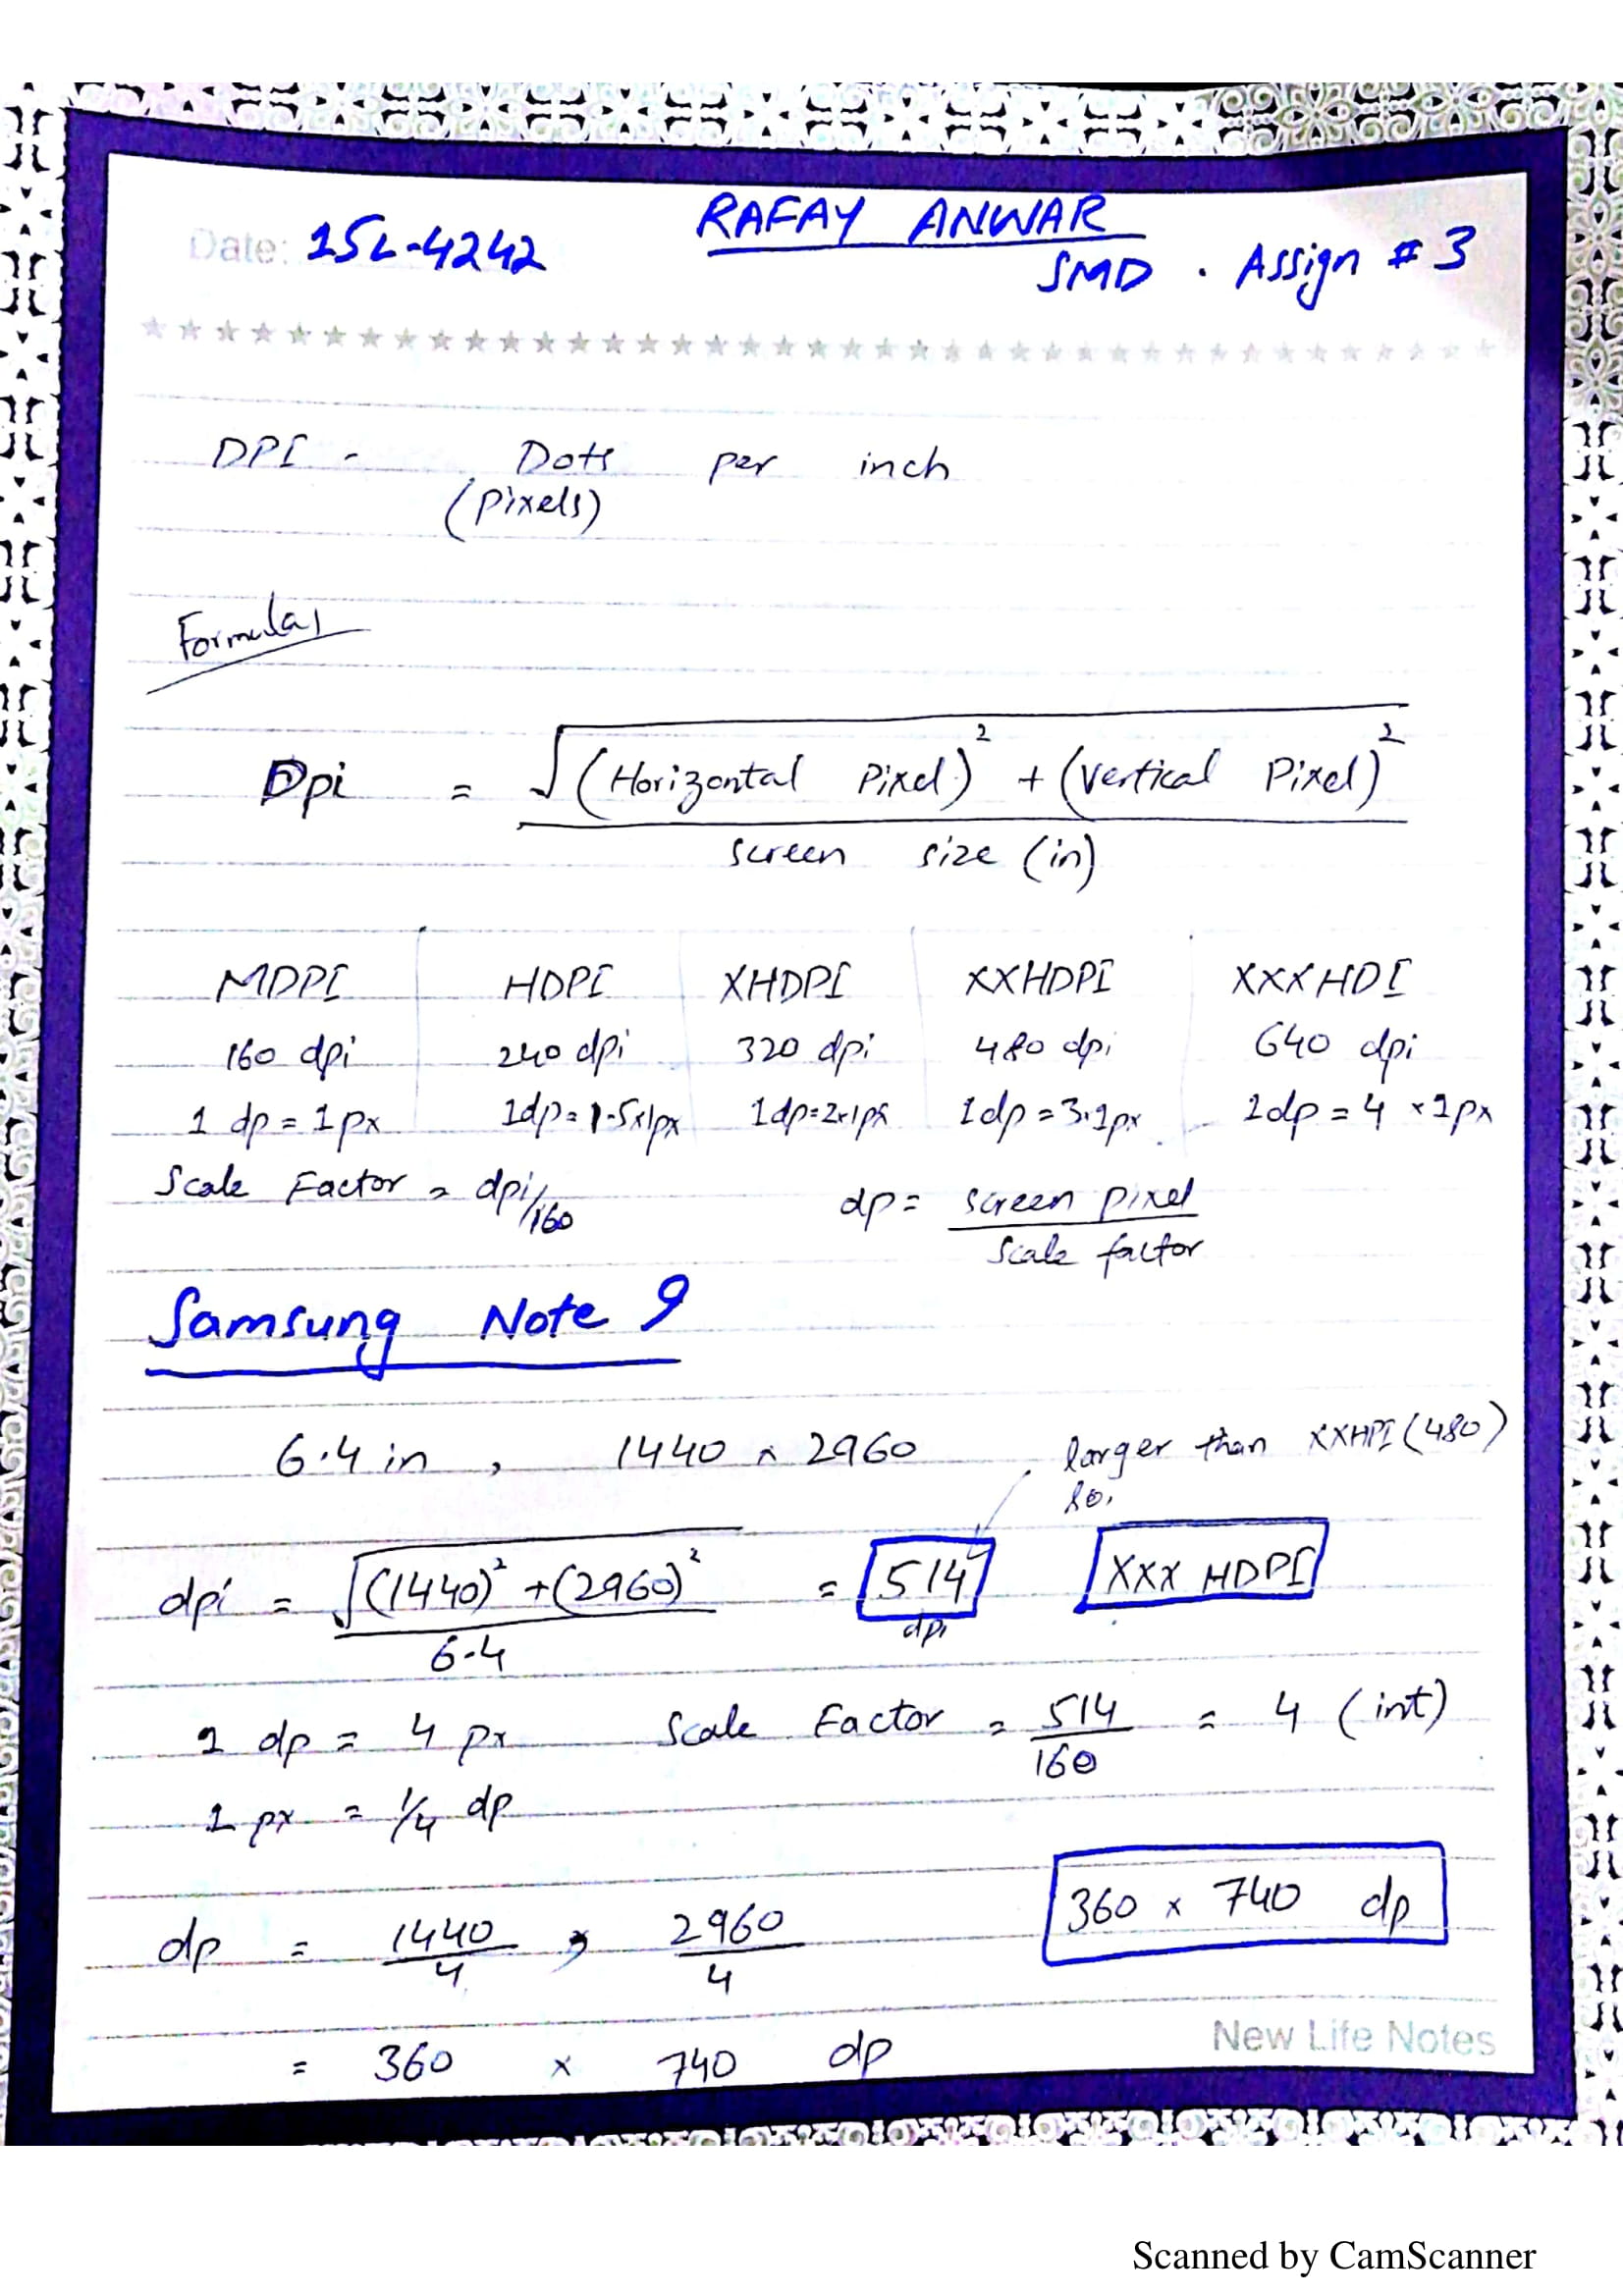 RAFAY ANWAR
Date: 15L-4242
SMD . Assign # 3
DPI - Dots per inch
(Pixels)
Formulas
Dpi = √(Horizontal Pixel)² + (Vertical Pixel)²
screen size (in)
MDPI HDPI XHDPI XXHDPI XXXHDI
160 dpi 240 dpi 320 dpi 480 dpi 640 dpi
1 dp = 1 px 1dp = 1.5x1px 1dp=2x1px 1dp = 3x1px 1dp = 4 x 1px
Scale Factor = dpi/160
dp = screen pixel
Scale factor
Samsung Note 9
6.4 in , 1440 x 2960
larger than XXHPI (480)
so,
dpi = √(1440)² + (2960)² = 514 XXX HDPI
6.4 dpi
1 dp = 4 px Scale Factor = 514 = 4 (int)
160
1 px = 1/4 dp
360 x 740 dp
dp = 1440 , 2960
4 4
= 360 x 740 dp
New Life Notes
Scanned by CamScanner